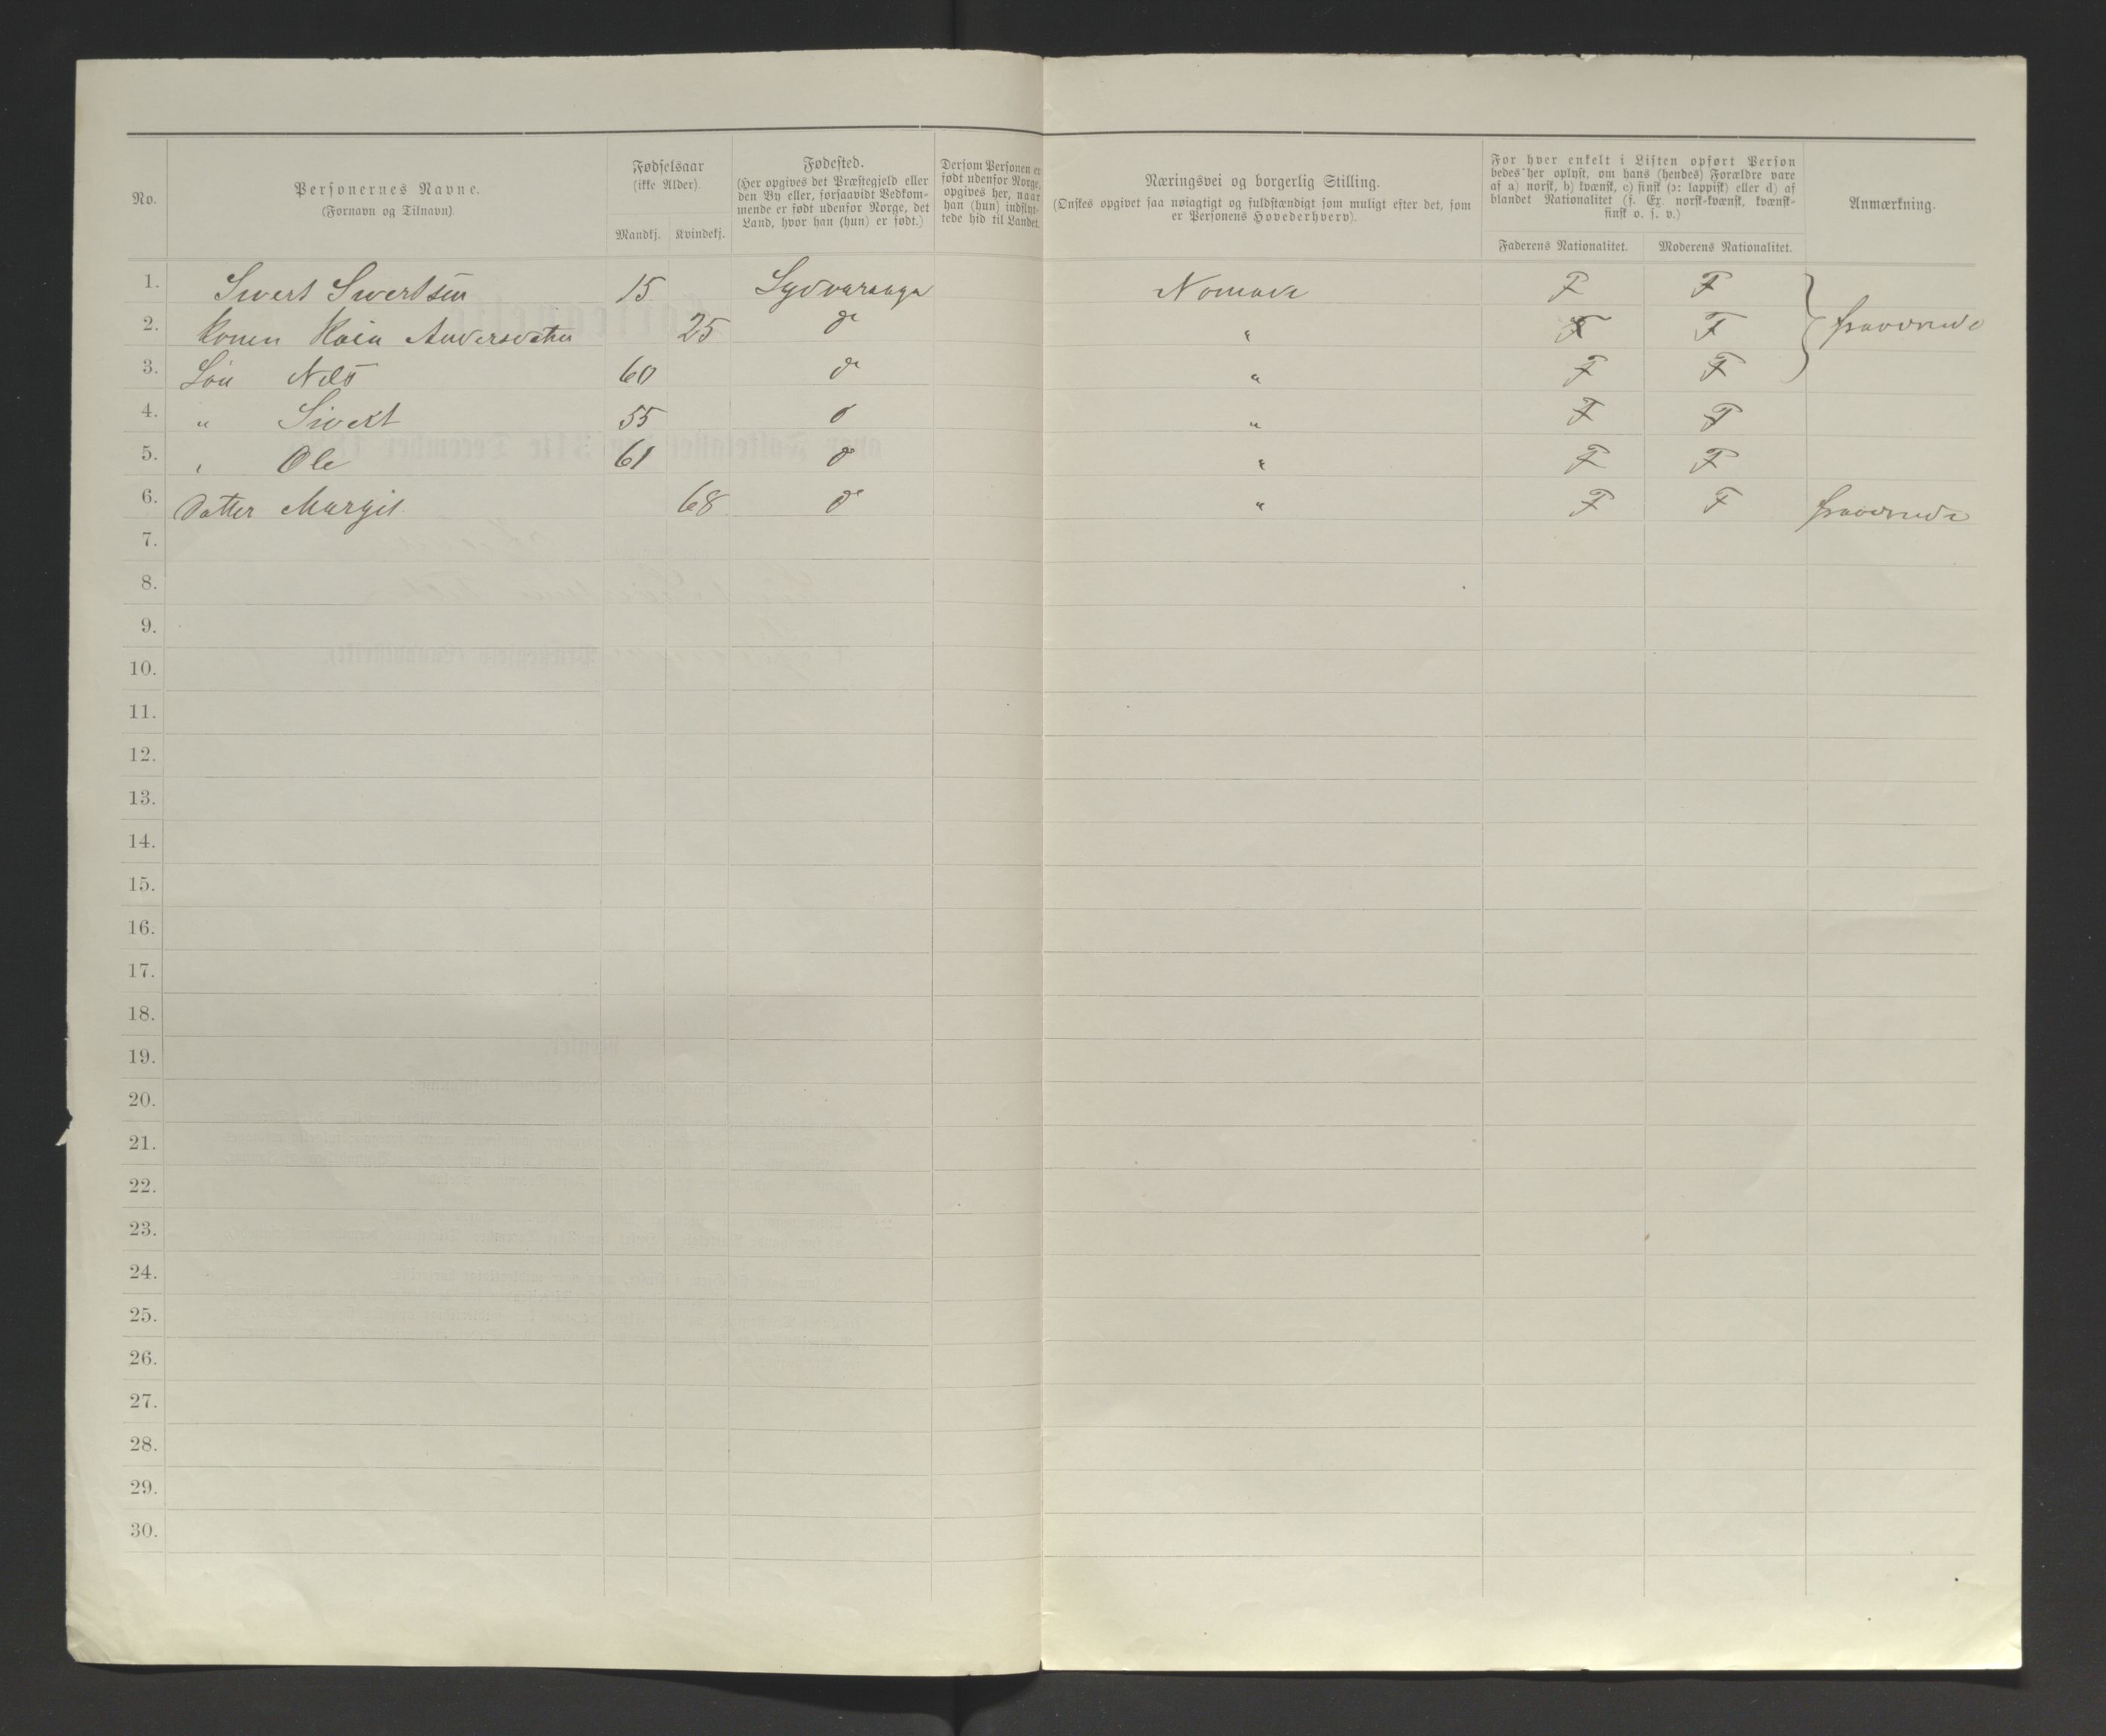 No.
Personernes Navne.
(Fornavn og Tilnavn).
Fødselsaar
(ikke Alder).
Mandkj. Kvindekj.
Fødested.
(Her opgives det Præstegjeld eller
den By eller, forsaavidt Vedkom-
mende er født udenfor Norge, det
Land, hvor han (hun) er født.)
Dersom Personen er
født udenfor Norge,
opgives her, naar
han (hun) indflyt-
tede hid til Landet.
Næringsvei og borgerlig Stilling.
(Ønskes opgivet saa nøiagtigt og fuldstændigt som muligt efter det, som
er Personens Hovederhverv).
For hver enkelt i Listen opført Person
bedes her oplyst, om hans (hendes) Forældre vare
af a) norsk, b) kvænsk, c) finsk (ɔ: lappisk) eller d) af
blandet Nationalitet (f. Ex. norsk-kvænsk, kvænsk-
finsk o. s. v.)
Faderens Nationalitet. Moderens Nationalitet.
Anmærkning.
1. Sivert Sivertsen 15 Sydvaranger Nomade F F
2. Konen Kaia Andersdatter 25 do " F F } fraværende
3. Søn Nils 60 do " F F
4. " Sivert 55 do " F F
5. " Ole 61 do " F F
6. Datter Margit 68 do " F F fraværende
7.
8.
9.
10.
11.
12.
13.
14.
15.
16.
17.
18.
19.
20.
21.
22.
23.
24.
25.
26.
27.
28.
29.
30.